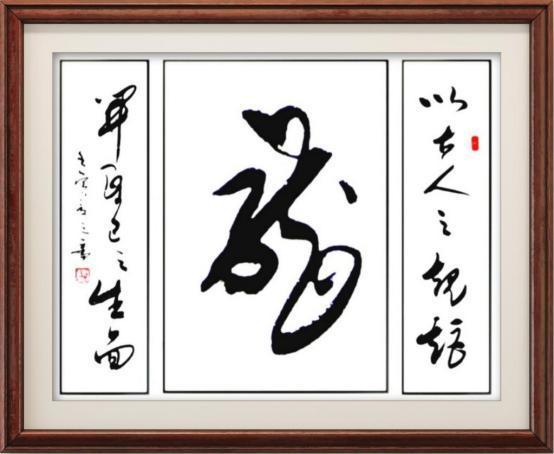 以古人之规矩
龍
開自己之生面
壬寅